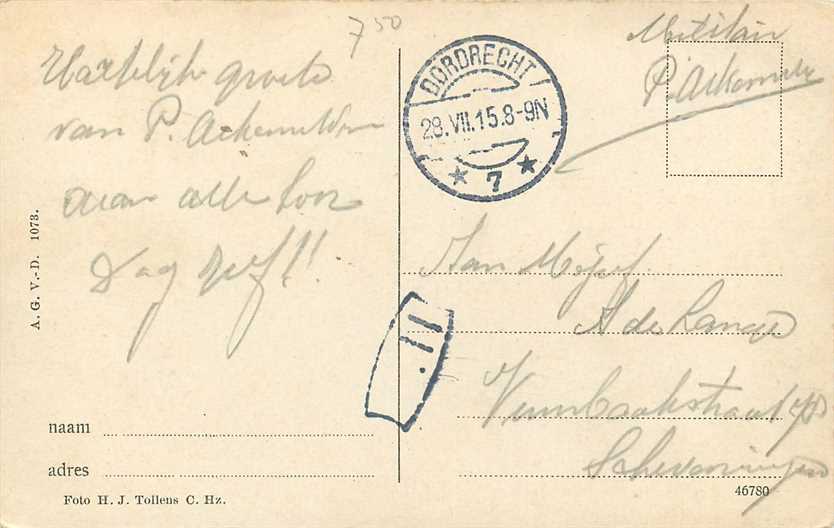 750
Hartelijke groete
van P. Ackermelder
aan alle hoor
Dag Juf!!
A. G. V.-D. 1073.
naam
adres
Foto H. J. Tollens C. Hz.
DORDRECHT
28.VII.15.8-9N
* 7 *
Militair
P. Ackermelder
11.
Aan Mejuf
A de Lange
Scheveningen
46780